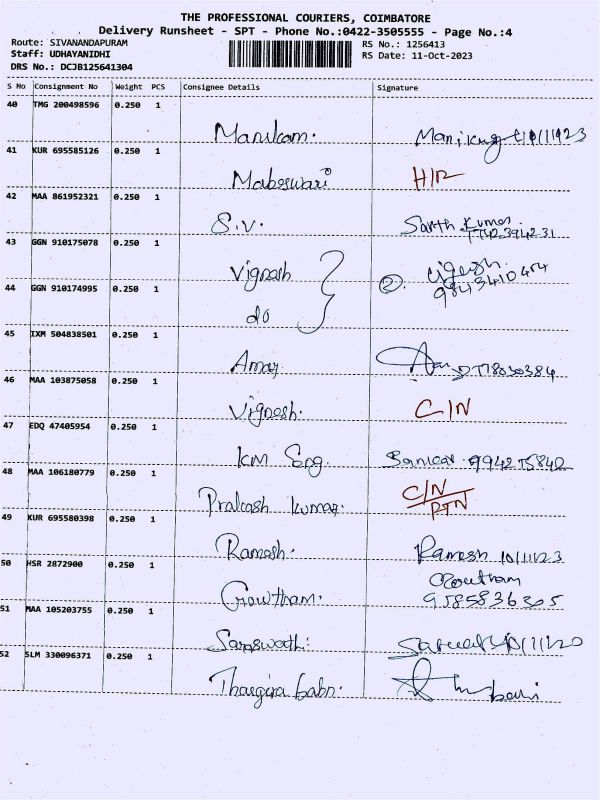 THE PROFESSIONAL COURIERS, COIMBATORE
Delivery Runsheet - SPT - Phone No.:0422-3505555 - Page No.:4
Route: SIVANANDAPURAM
RS No.: 1256413
Staff: UDHAYANIDHI
RS Date: 11-Oct-2023
DRS No.: DCJB125641304
S No Consignment No Weight PCS Consignee Details Signature
40 TMG 200498596 0.250 1
Manikam.
41 KUR 695585126 0.250 1
Maheswari
42 MAA 861952321 0.250 1
S.V. Sarth Kumar
43 GGN 910175078 0.250 1
Vignesh
② 9843410454
44 GGN 910174995 0.250 1
do
45 IXM 504838501 0.250 1
46 MAA 103875058 0.250 1
Vignesh. C/N
47 EDQ 47405954 0.250 1
KM Eng
48 MAA 106180779 0.250 1
Prakash Kumar. C/N
RTN
49 KUR 695580398 0.250 1
Ramesh. Ramesh 10/11/23
50 HSR 2872900 0.250 1
Gowtham. Goutham
9585836305
51 MAA 105203755 0.250 1
Saraswathi
52 SLM 330096371 0.250 1